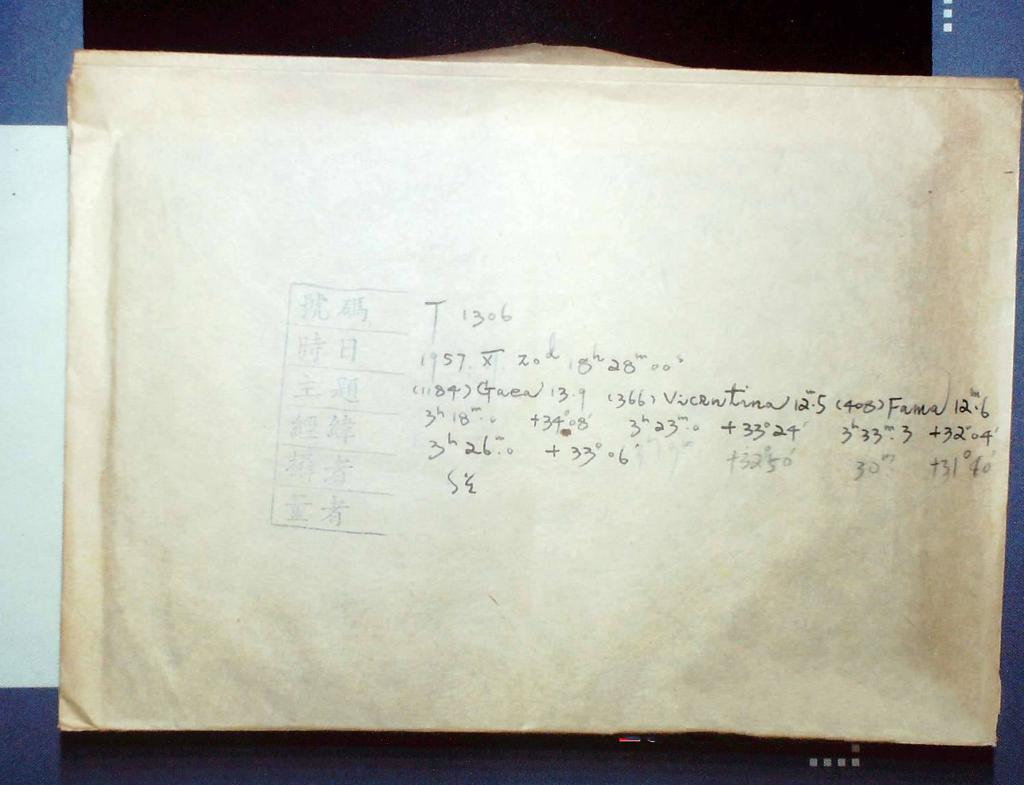 號碼 T 1306
時日 1957 XI 20ᵈ 18ʰ 28ᵐ 00ˢ
主題 (1184) Gaea 13.9 (366) Vicentina 12ᵐ.5 (408) Fama 12ᵐ.6
經緯 3ʰ 18ᵐ.0 +34°08' 3ʰ 23ᵐ.0 +33°24' 3ʰ 33ᵐ.3 +32°04'
3ʰ 26ᵐ.0 +33°06' +32°50' 30ᵐ +31°40'
者
量者